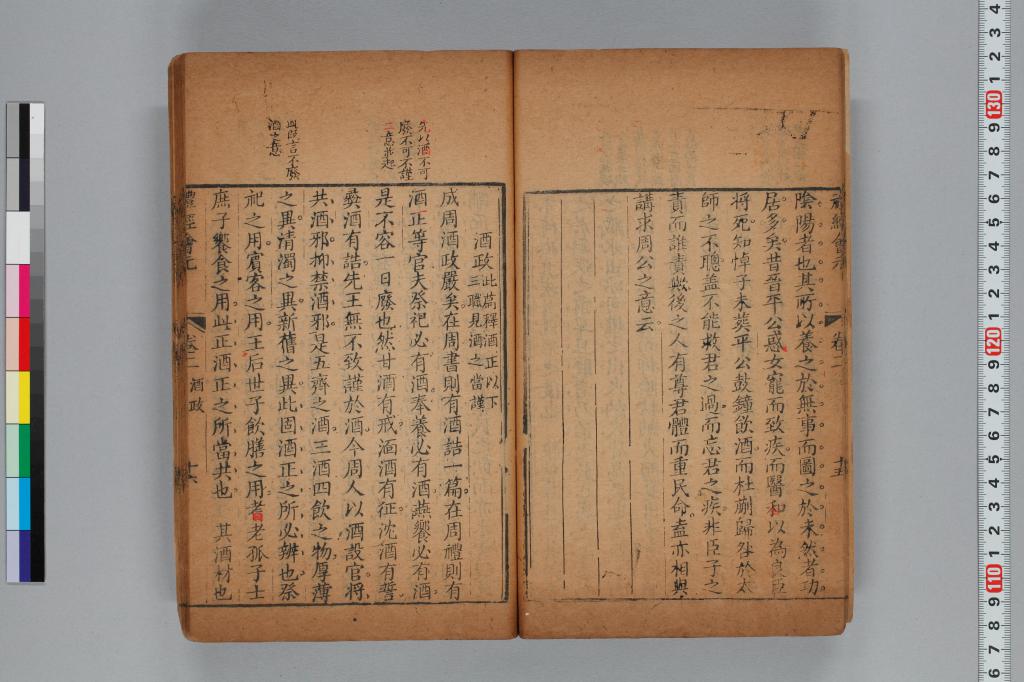 陰陽者也其所以養之於無事而圖之於未然者功
居多矣昔晉平公惑女寵而致疾而醫和以為良臣
將死知悼子未葬平公鼓鐘飲酒而杜蕢歸咎於太
師之不聰盖不能救君之過而忘君之疾非臣子之
責而誰責歟後之人有尊君體而重民命盍亦相與
講求周公之意云
酒政此篇釋酒正以下三職見酒之當謹
成周酒政嚴矣在周書則有酒誥一篇在周禮則有
酒正等官夫祭祀必有酒奉養必有酒燕饗必有酒
是不容一日廢也然甘酒有戒湎酒有征沈酒有誓
彛酒有誥先王無不致謹於酒今周人以酒設官將
共酒邪抑禁酒邪是五齊之酒三酒四飲之物厚薄
之異清濁之異新舊之異此固酒正之所必辨也祭
祀之用賓客之用王后世子飲膳之用耆老孤子士
庶子饗食之用此正酒正之所當共也 其酒材也
先以酒不可
廢不可不謹
二意並起
此段言不廢
酒之意
禮經會元 卷二 酒政 十六
禮經會元 卷二 十五